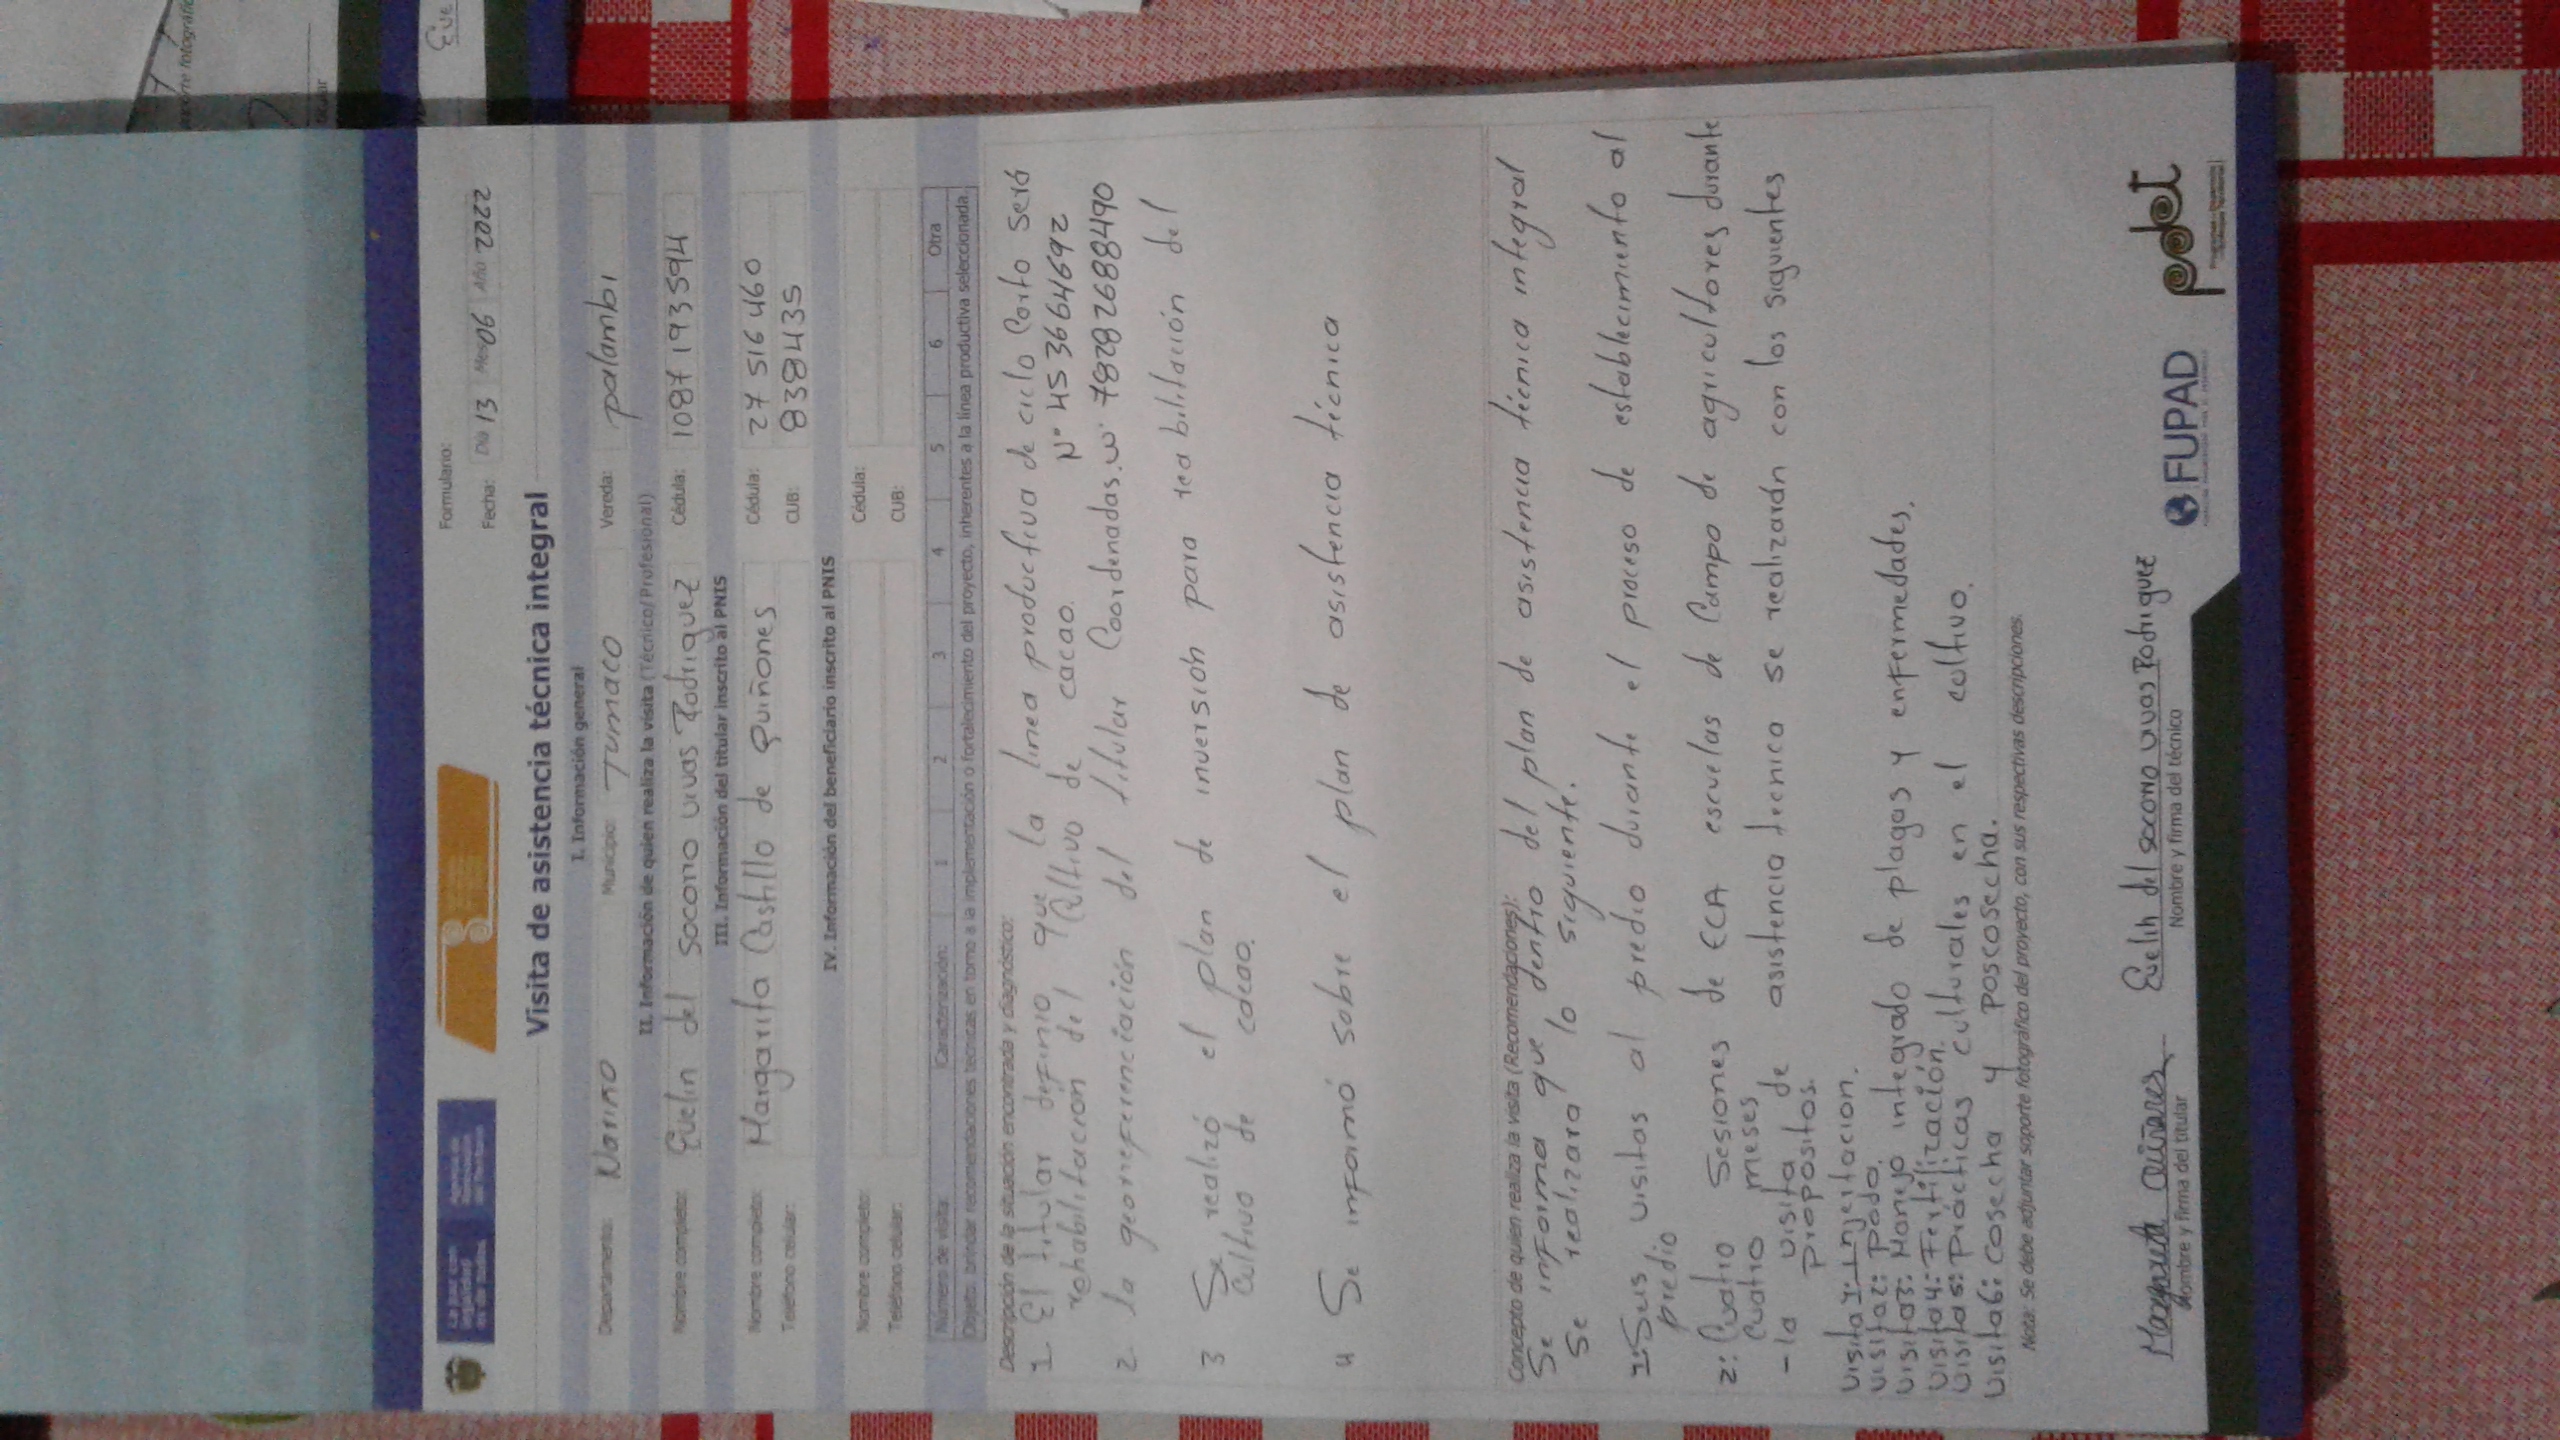 Formulario:
Fecha: Día 13 Mes 06 Año 2022
Visita de asistencia técnica integral
I. Información general
Departamento: Nariño Municipio: Tumaco Vereda: palambi
II. Información de quien realiza la visita (Técnico/Profesional)
Nombre completo: Evelin del socorro vivas Rodriguez Cédula: 1087193594
III. Información del titular inscrito al PNIS
Nombre completo: Margarita Castillo de Quiñones Cédula: 27 516 460
Teléfono celular: CUB: 8398435
IV. Información del beneficiario inscrito al PNIS
Nombre completo: Cédula:
Teléfono celular: CUB:
Número de visita: Caracterización: 1 2 3 4 5 6 Otra
Objeto: brindar recomendaciones técnicas en torno a la implementación o fortalecimiento del proyecto, inherentes a la línea productiva seleccionada.
Descripción de la situación encontrada y diagnóstico:
1 El titular definio que la linea productiva de ciclo Corto será
rehabilitación del Cultivo de cacao. N° 45 36641692
2 la georreferenciación del titular Coordenadas.w. 7828268 8490
3 Se realizó el plan de inversión para reabilitación del
Cultivo de cacao.
4 Se informó sobre el plan de asistencia técnica
Concepto de quien realiza la visita (Recomendaciones):
Se informa que dentro del plan de asistencia técnica integral
Se realizara lo siguiente.
1: Seis visitas al predio durante el proceso de establecimiento al
predio
2: Cuatro Sesiones de ECA escuelas de Campo de agricultores durante
Cuatro meses
- la visita de asistencia tecnica se realizarán con los siguientes
propositos.
visita 1: injertacion.
visita 2: poda.
visita 3: Manejo integrado de plagas y enfermedades.
visita 4: Fertilización.
visita 5: Prácticas culturales en el cultivo.
visita 6: Cosecha y poscosecha.
Nota: Se debe adjuntar soporte fotográfico del proyecto, con sus respectivas descripciones.
Evelin del socorro vivas Rodriguez
Nombre y firma del titular Nombre y firma del técnico
FUPAD
pdet